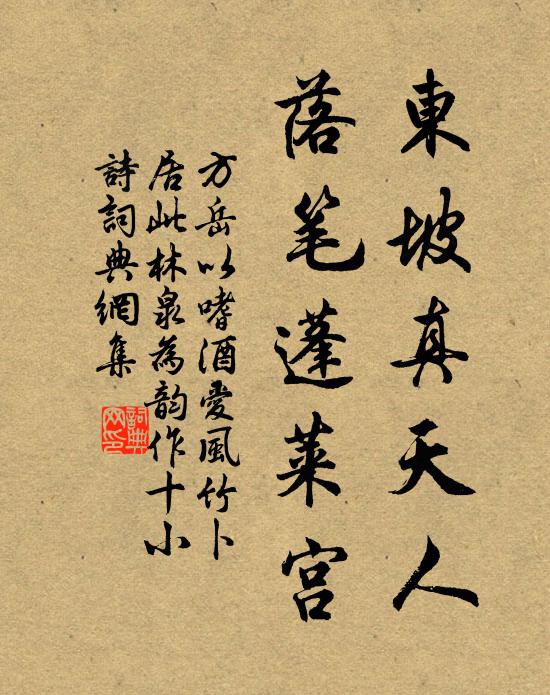 東坡真天人
落笔蓬萊宮
方岳以嗜酒愛風竹卜
居此林泉為韵作十小
詩詞典網集
詞典网印